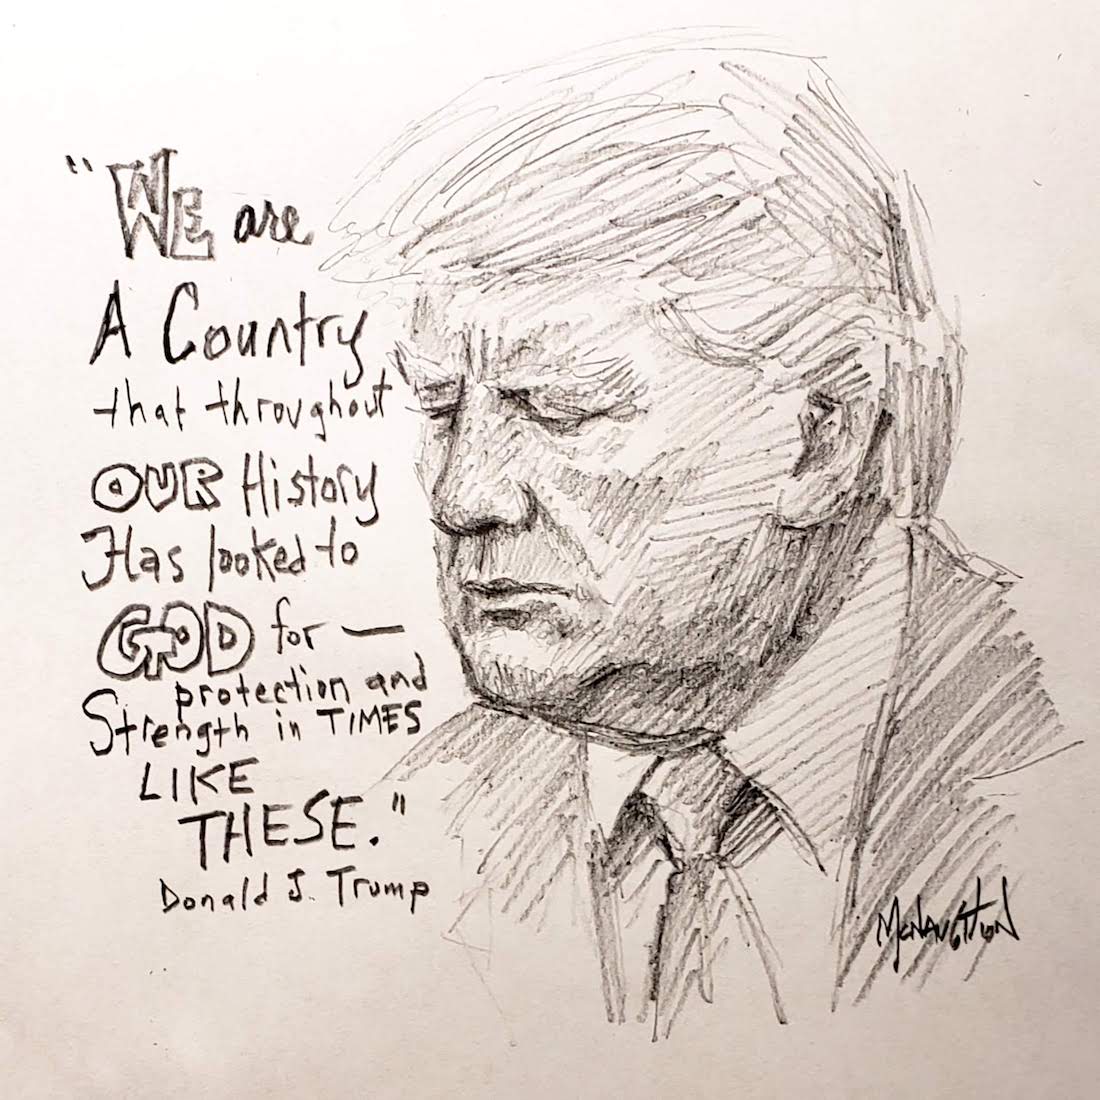 "WE are
A Country
that throughout
OUR History
Has looked to
GOD for —
protection and
Strength in TIMES
LIKE
THESE."
Donald J. Trump
McNaughton